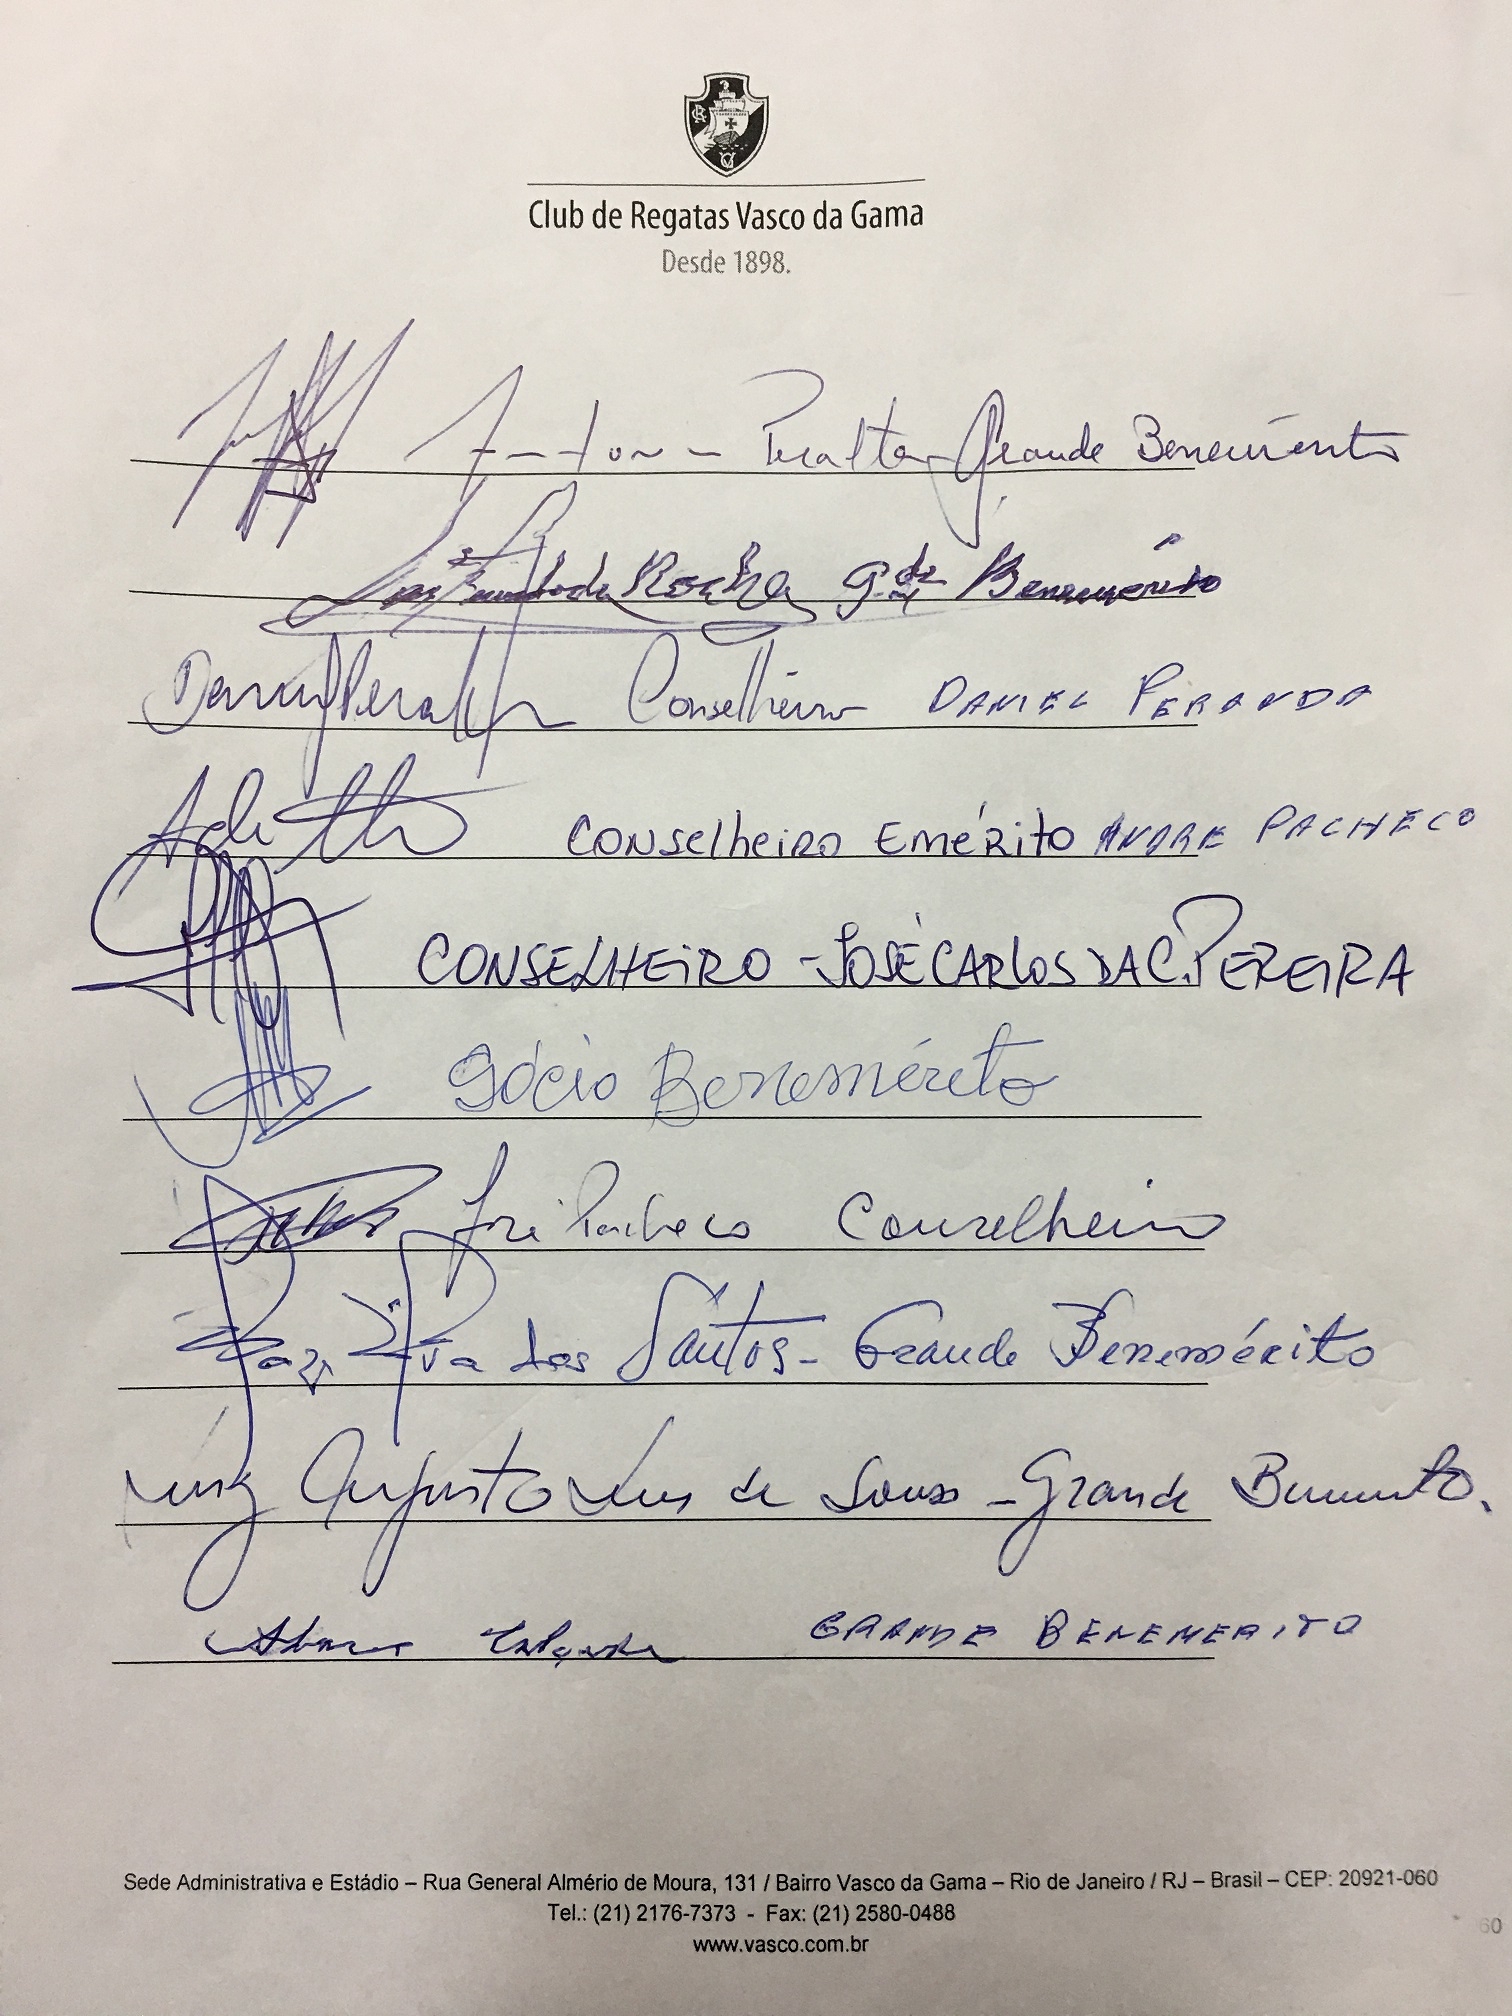 Club de Regatas Vasco da Gama
Desde 1898.
Antonio Peralta Grande Benemérito
Rocha Gde Benemérito
Conselheiro DANIEL PERANDA
CONSELHEIRO EMÉRITO ANDRE PACHECO
CONSELHEIRO - JOSÉ CARLOS DA C. PEREIRA
Sócio Benemérito
José Pacheco Conselheiro
dos Santos - Grande Benemérito
Luiz Augusto de Souza - Grande Benemérito.
GRANDE BENEMERITO
Sede Administrativa e Estádio – Rua General Almério de Moura, 131 / Bairro Vasco da Gama – Rio de Janeiro / RJ – Brasil – CEP: 20921-060
Tel.: (21) 2176-7373 - Fax: (21) 2580-0488
www.vasco.com.br
60